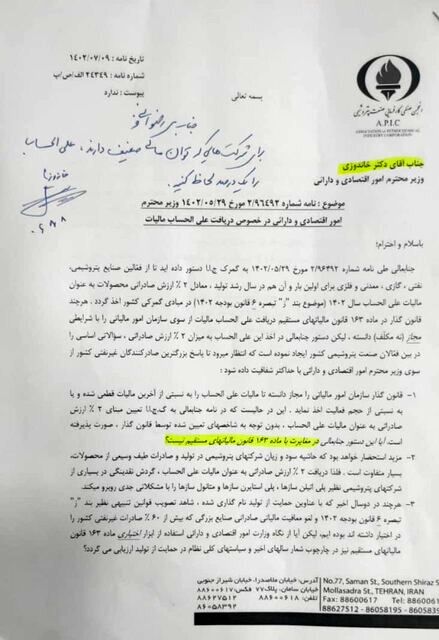 تاریخ نامه : ۱۴۰۲/۰۷/۰۹
شماره نامه : ۲۴۳۴۹/الف/ص/پ
پیوست : ندارد
بسمه تعالی
انجمن صنفی کارفرمایی صنعت پتروشیمی
A.P.I.C
ASSOCIATION OF PETROCHEMICAL
INDUSTRY CORPORATION
جناب آقای
برای شرکت‌هایی که توان مالی ضعیف دارند، علی الحساب
را یک درصد لحاظ کنید.
جناب آقای دکتر خاندوزی
وزیر محترم امور اقتصادی و دارائی
موضوع : نامه شماره ۲/۹۶۴۹۲ مورخ ۱۴۰۲/۰۵/۲۹ وزیر محترم
امور اقتصادی و دارائی در خصوص دریافت علی الحساب مالیات
باسلام و احترام؛
جنابعالی طی نامه شماره ۲/۹۶۴۹۲ مورخ ۱۴۰۲/۰۵/۲۹ به گمرک ج.ا.ا دستور داده اید تا از فعالین صنایع پتروشیمی،
نفتی ، گازی ، معدنی و فلزی برای اولین بار و آن هم در سال رشد تولید ، معادل ۲ ٪ ارزش صادراتی محصولات به عنوان
علی الحساب مالیات سال ۱۴۰۲ (موضوع بند "ز" تبصره ۶ قانون بودجه ۱۴۰۲) در مبادی گمرکی کشور اخذ گردد . هرچند
قانون گذار در ماده ۱۶۳ قانون مالیاتهای مستقیم دریافت علی الحساب مالیات از سوی سازمان امور مالیاتی را با شرایطی
مجاز (نه مکلف) دانسته ، لیکن دستور جنابعالی در اخذ این علی الحساب به میزان ۲ ٪ ارزش صادراتی ، سؤالاتی اساسی را
در بین فعالان صنعت پتروشیمی کشور ایجاد نموده است که انتظار میرود تا پاسخ بزرگترین صادرکنندگان غیرنفتی کشور از
سوی وزیر محترم امور اقتصادی و دارائی با حداکثر شفافیت داده شود :
۱- قانون گذار سازمان امور مالیاتی را مجاز دانسته تا مالیات علی الحساب را به نسبتی از آخرین مالیات قطعی شده و یا
به نسبتی از حجم فعالیت اخذ نماید . این در حالیست که در نامه جنابعالی به گ.ج.ا.ا تعیین مبنای ۲ ٪ ارزش
صادراتی به عنوان مالیات علی الحساب ، بدون توجه به شاخصهای تعیین شده توسط قانون گذار ، صورت پذیرفته
است. آیا این دستور جنابعالی در مغایرت با ماده ۱۶۳ قانون مالیاتهای مستقیم نیست؟
۲- مزید استحضار خواهد بود که حاشیه سود و زیان شرکتهای پتروشیمی در تولید و صادرات طیف وسیعی از محصولات،
بسیار متفاوت است . فلذا دریافت ۲ ٪ ارزش صادراتی به عنوان مالیات علی الحساب، گردش نقدینگی در بسیاری از
شرکتهای پتروشیمی نظیر پلی اتیلن سازها ، پلی استایرن سازها و متانول سازها را با مشکلاتی جدی روبرو میکند.
۳- هرچند در دوسال اخیر که با عناوین حمایت از تولید نام گذاری شده ، شاهد تصویب قوانین تنبیهی نظیر بند "ز"
تبصره ۶ قانون بودجه ۱۴۰۲ و لغو معافیت مالیاتی صادراتی صنایع بزرگی که بیش از ۶۰ ٪ صادرات غیرنفتی کشور را
در اختیار داشته اند بوده ایم، لیکن آیا از نگاه وزارت امور اقتصادی و دارائی استفاده از ابزار اختیاری ماده ۱۶۳ قانون
مالیاتهای مستقیم نیز در چارچوب شعار سالهای اخیر و سیاستهای کلی نظام در حمایت از تولید ارزیابی می گردد؟
آدرس: خیابان ملاصدرا، خیابان شیراز جنوبی
خیابان سامان، پلاک۷۷ فکس: ۸۸۶۰۰۶۱۷
تلفن: ۸۸۶۰۰۶۱۸ ۸۸۶۲۷۵۱۲
۸۶۰۵۸۳۹۲
No.77, Saman St., Southern Shiraz S
Mollasadra St., TEHRAN, IRAN
Fax: 88600617 Tel: 88600
88627512 - 86058195 - 8605839